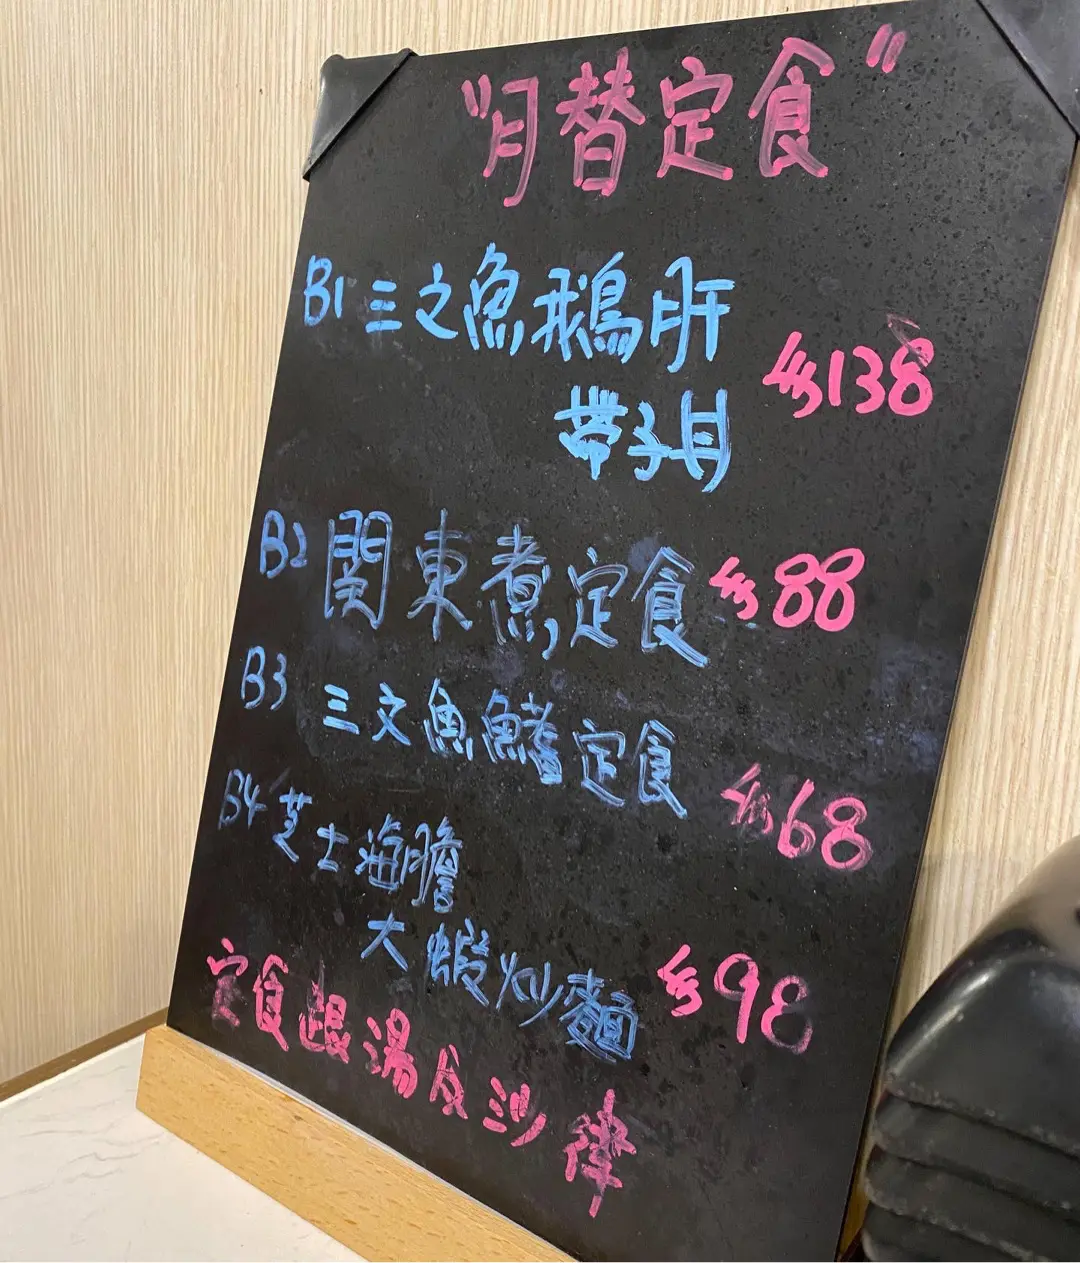 "月替定食"
B1 三之魚鵝肝
帶子丼 $138
B2 関東煮定食 $88
B3 三文魚鰭定食 $68
B4 芝士海膽
大蝦炒麵 $98
定食跟湯及沙律